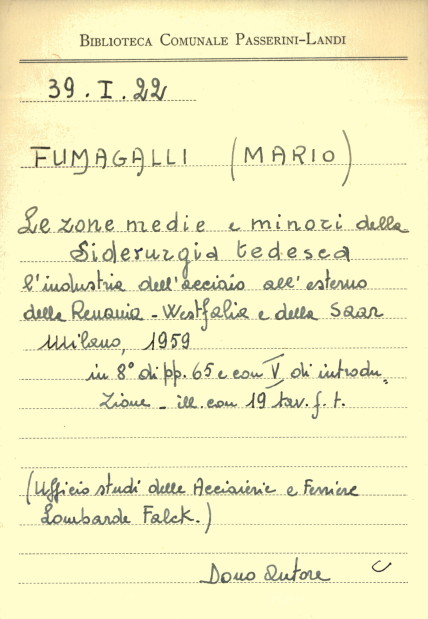 BIBLIOTECA COMUNALE PASSERINI-LANDI
39.I.22
FUMAGALLI (MARIO)
Le zone medie e minori della
Siderurgia tedesca
l'industria dell'acciaio all'esterno
della Renania - Westfalia e della Saar
Milano, 1959
in 8° di pp. 65 e con V di introdu=
zione - ill. con 19 tav. f. t.
(Ufficio studi delle Acciaierie e Ferriere
Lombarde Falck.)
Dono Autore C